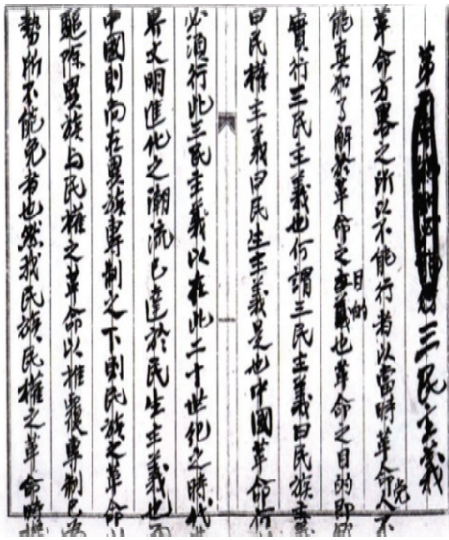 第三民主義
革命方畧之所以不能行者以當時革命党人不
能真知了解於革命之目的也革命之目的即
實行三民主義也何謂三民主義曰民族主義
曰民權主義曰民生主義是也中國革命何
必須行此三民主義以在此二十世紀之時代
界文明進化之潮流已達於民生主義也
中國則尚在異族專制之下則民族之革命以
驅除異族与民權之革命以推覆專制已為
勢所不能免者也然我民族民權之革命時機